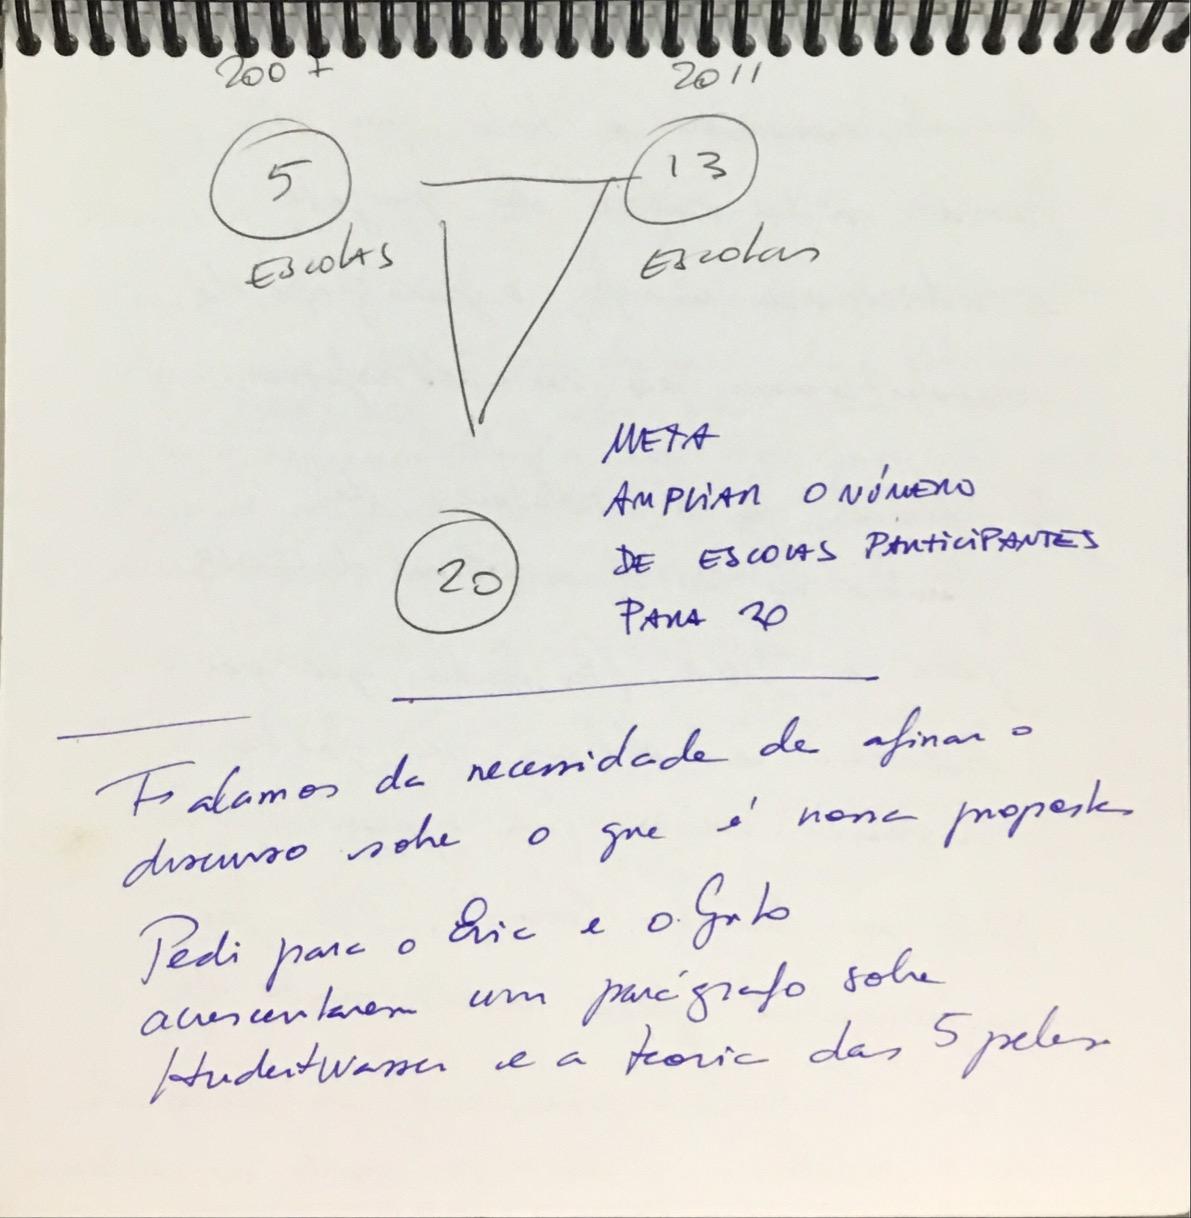 2007 2011
5 13
ESCOLAS Escolas
META
AMPLIAR O NÚMERO
DE ESCOLAS PARTICIPANTES
20
PARA 20
Falamos da necessidade de afinar o
discurso sobre o que é nossa proposta
Pedi para o Eric e o
acrescentarem um parágrafo sobre
Hundertwasser e a teoria das 5 peles